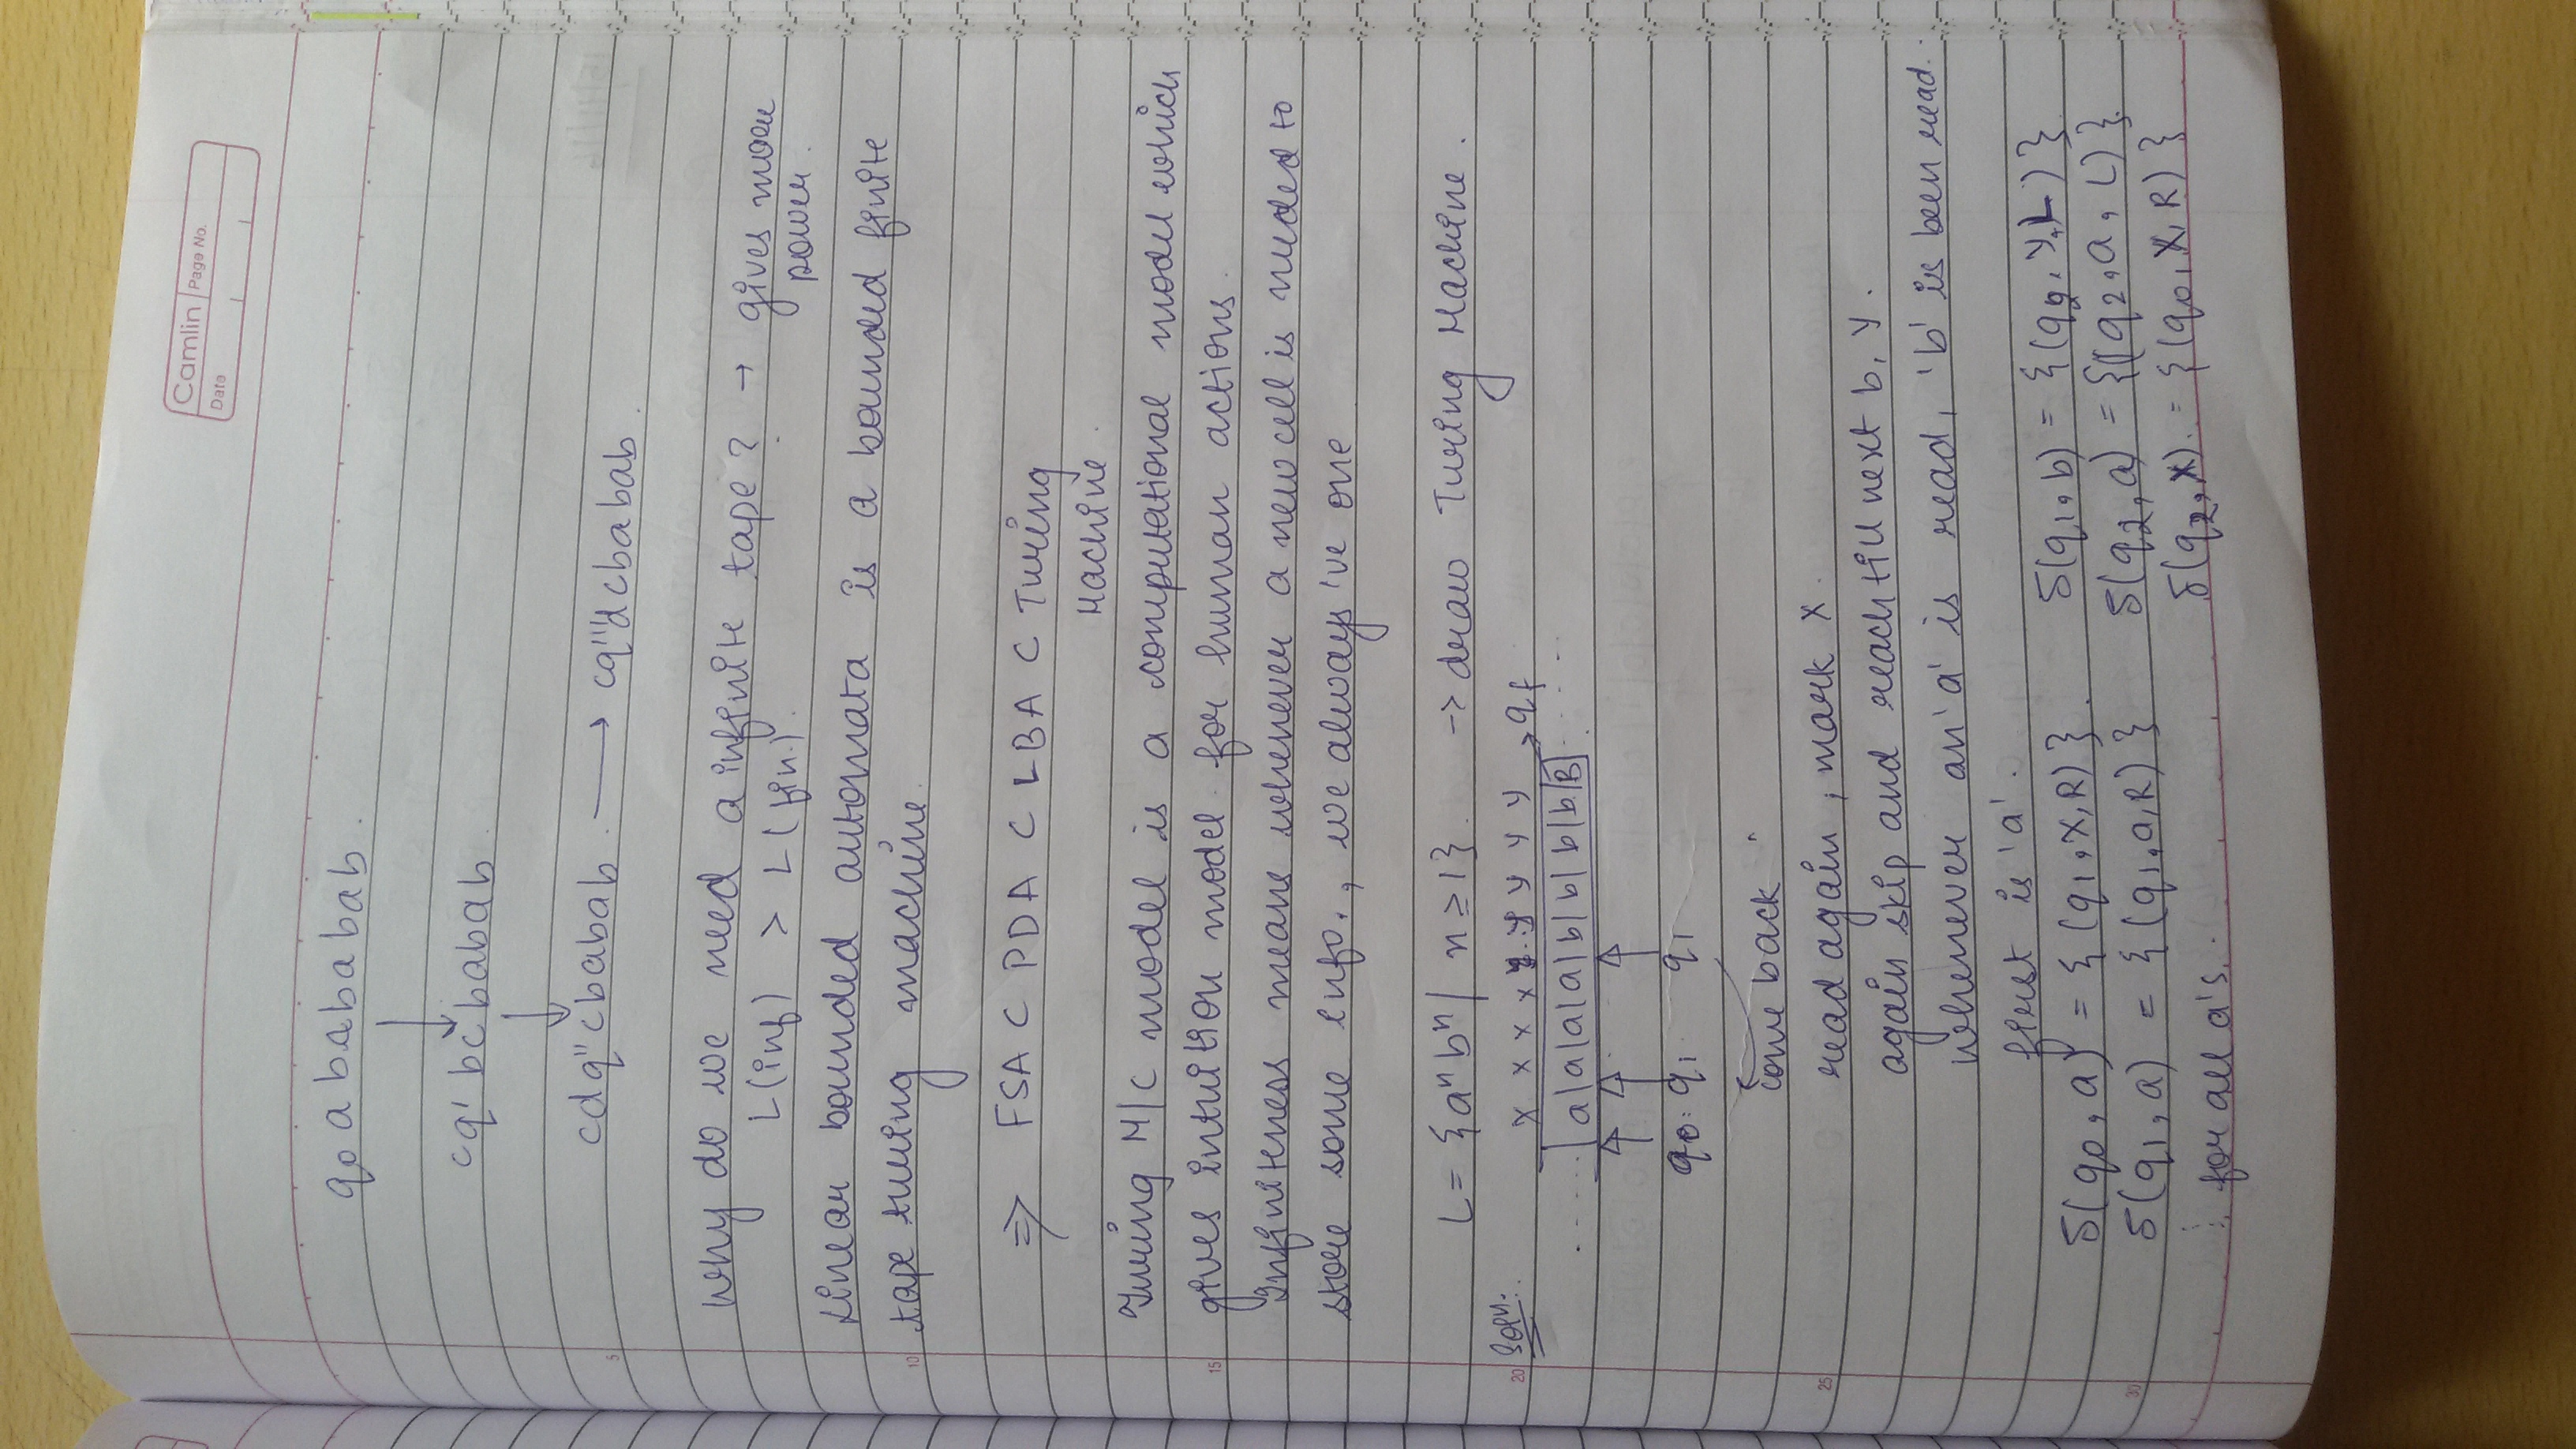 Camlin Page No.
Date
q₀ a b a b a b a b .
↓
c q' b c b a b a b .
↓
c d q'' c b a b a b . → c q''' d c b a b a b .
5
Why do we need a infinite tape? → gives more
L(inf) > L(fin.).
power.
Linear bounded automata is a bounded finite
10
tape turing machine.
⇒ FSA ⊂ PDA ⊂ LBA ⊂ Turing
Machine.
Turing M/C model is a computational model which
15
gives intuition model for human actions.
Infiniteness means whenever a new cell is needed to
store some info., we always 've one
L = {aⁿbⁿ | n ≥ 1}. → draw Turing Machine.
20
Soln:
x x x x y y y y y → qf
..... | a | a | a | a | b | b | b | b | B | .....
q₀ q₁ q₁
come back
25
read again, mark x.
again skip and reach till next b, y.
whenever an 'a' is read, 'b' is been read.
first is 'a'.
δ(q₀, a) = {(q₁, X, R)}. δ(q₁, b) = {(q₂, Y, L)}
30
δ(q₁, a) = {(q₁, a, R)} δ(q₂, a) = {(q₂, a, L)}.
⋮ for all a's. δ(q₂, X) = {(q₀, X, R)}